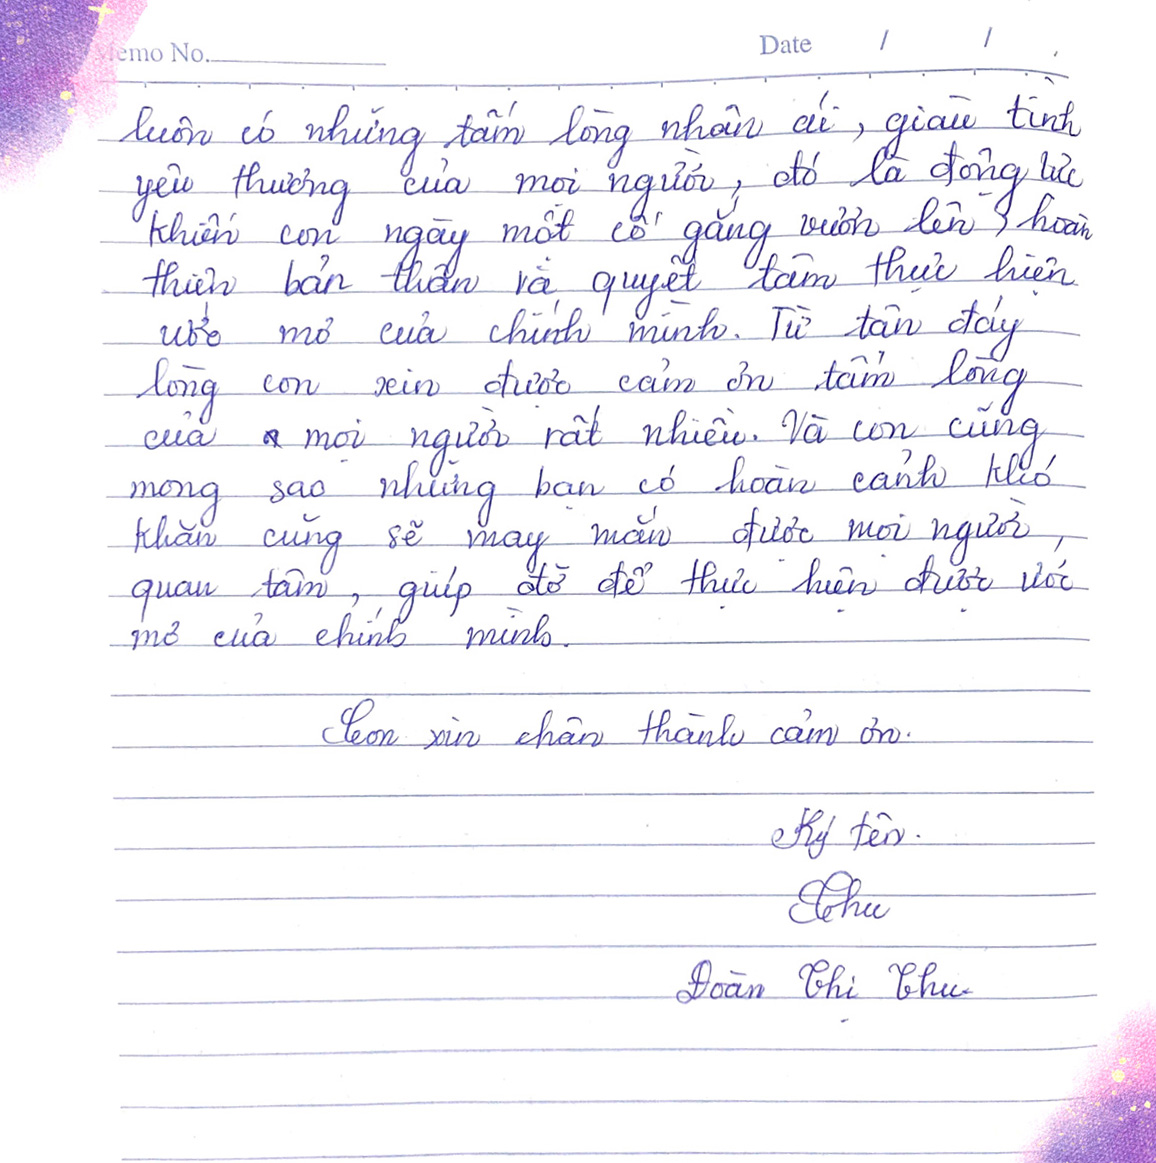 Memo No.
Date / /
luôn có những tấm lòng nhân ái, giàu tình
yêu thương của mọi người, đó là động lực
khiến con ngày một cố gắng vươn lên, hoàn
thiện bản thân và quyết tâm thực hiện
ước mơ của chính mình. Từ tận đáy
lòng con xin được cảm ơn tấm lòng
của mọi người rất nhiều. Và con cũng
mong sao những bạn có hoàn cảnh khó
khăn cũng sẽ may mắn được mọi người,
quan tâm, giúp đỡ để thực hiện được ước
mơ của chính mình.
Con xin chân thành cảm ơn.
Ký tên.
Thu
Đoàn Thị Thu